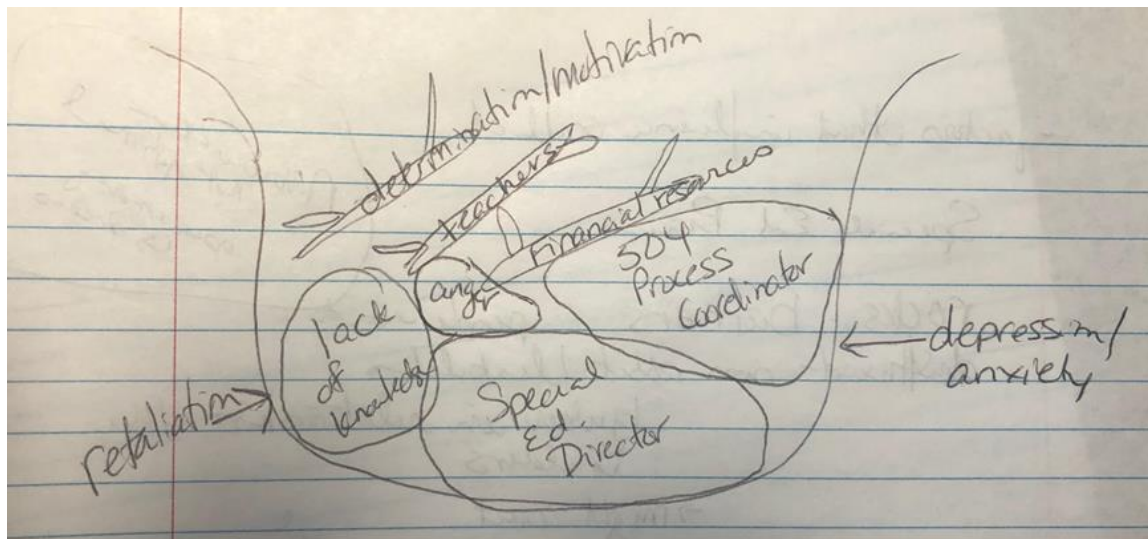 determination/motivation
teachers
Financial resources
504
Process
Coordinator
anger
lack
of
Special
Ed.
Director
retaliation
depression/
anxiety